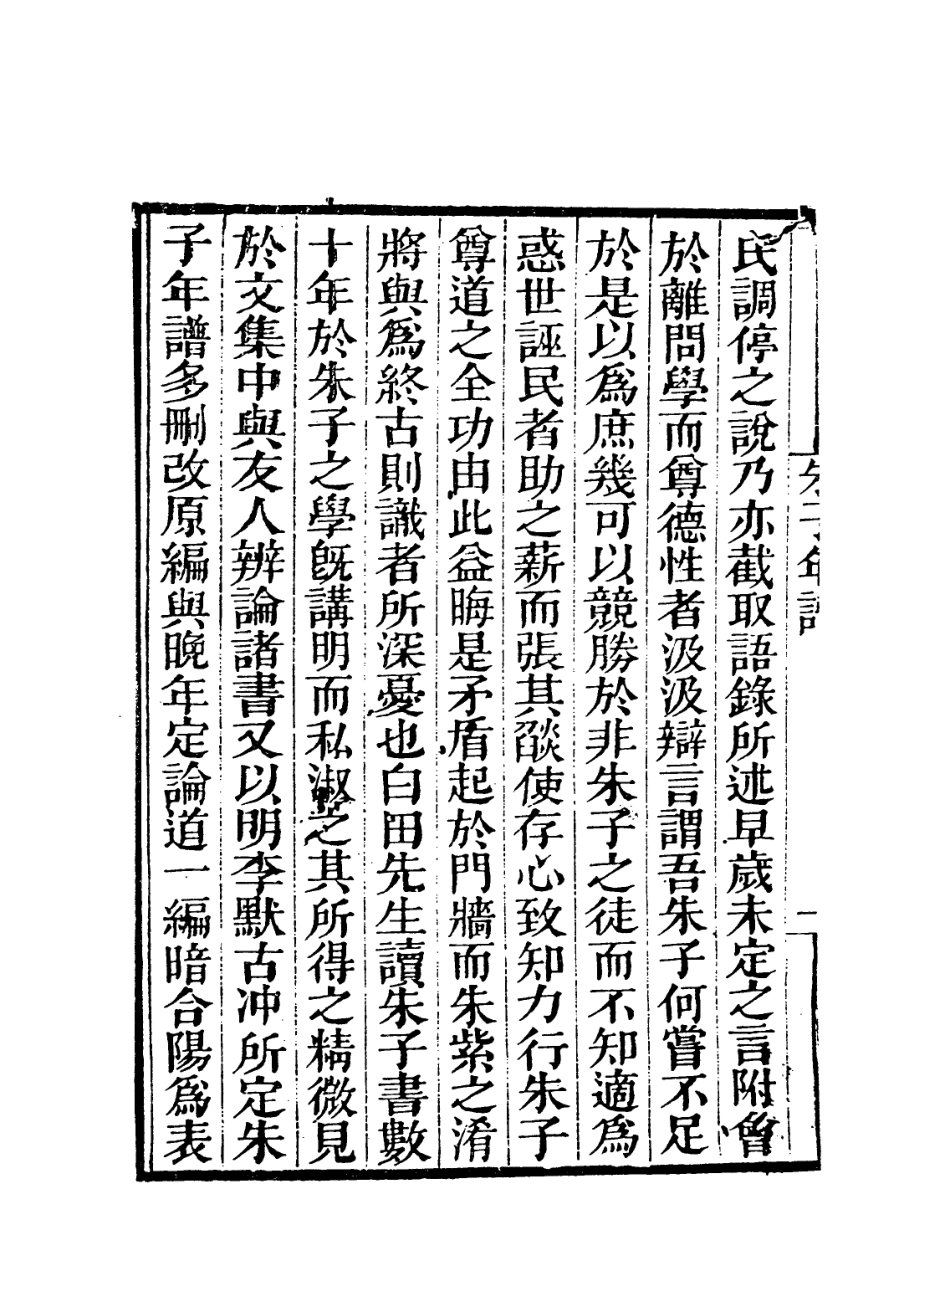 朱子年譜
一
民調停之說乃亦截取語錄所述早歲未定之言附會
於離問學而尊德性者汲汲辯言謂吾朱子何嘗不足
於是以爲庶幾可以競勝於非朱子之徒而不知適爲
惑世誣民者助之薪而張其燄使存心致知力行朱子
尊道之全功由此益晦是矛盾起於門牆而朱紫之淆
將與爲終古則識者所深憂也白田先生讀朱子書數
十年於朱子之學旣講明而私淑之其所得之精微見
於文集中與友人辨論諸書又以明李默古冲所定朱
子年譜多刪改原編與晚年定論道一編暗合陽爲表